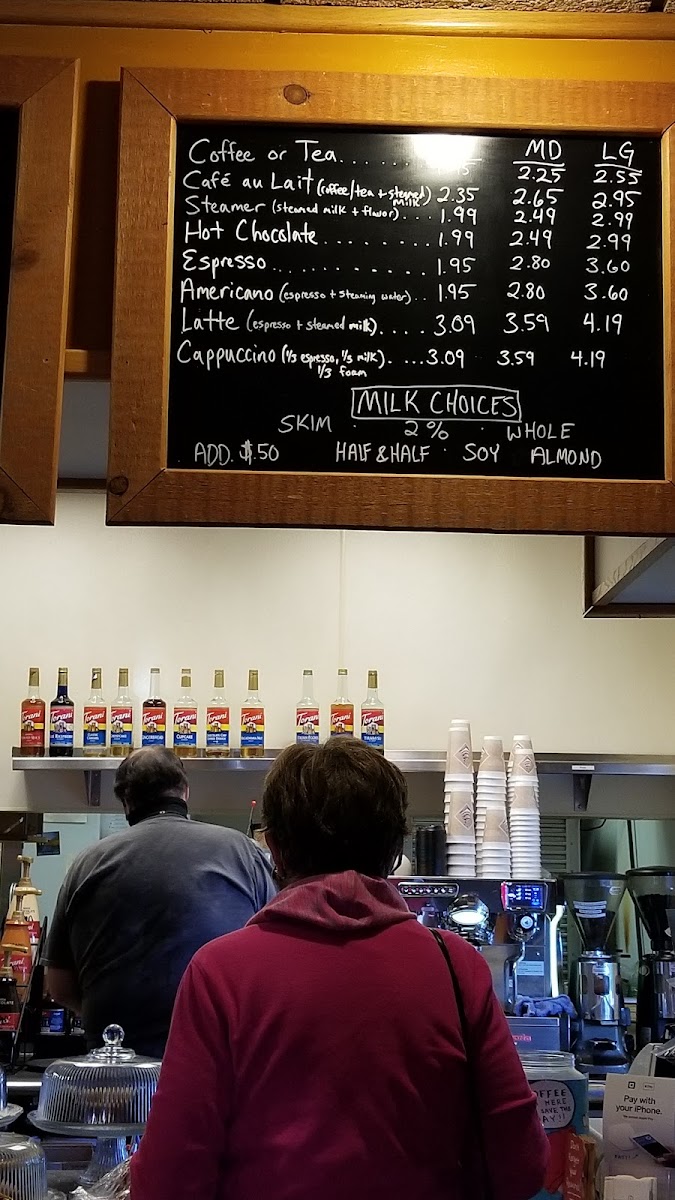 MD LG
Coffee or Tea....... 2.25 2.55
Café au Lait (coffee/tea + steamed milk) 2.35 2.65 2.95
Steamer (steamed milk + flavor)... 1.99 2.49 2.99
Hot Chocolate......... 1.99 2.49 2.99
Espresso............. 1.95 2.80 3.60
Americano (espresso + steaming water).. 1.95 2.80 3.60
Latte (espresso + steamed milk)..... 3.09 3.59 4.19
Cappuccino (1/3 espresso, 1/3 milk).....3.09 3.59 4.19
1/3 foam
MILK CHOICES
SKIM · 2% · WHOLE
ADD. $.50 HALF & HALF · SOY ALMOND
Torani
Torani
Torani
Torani
Torani
GINGERBREAD
Torani
CUPCAKE
Torani
Torani
Torani
Torani
Torani
Torani
COFFEE
HERE
SAVE THE
DAY!!
Pay with
your iPhone.